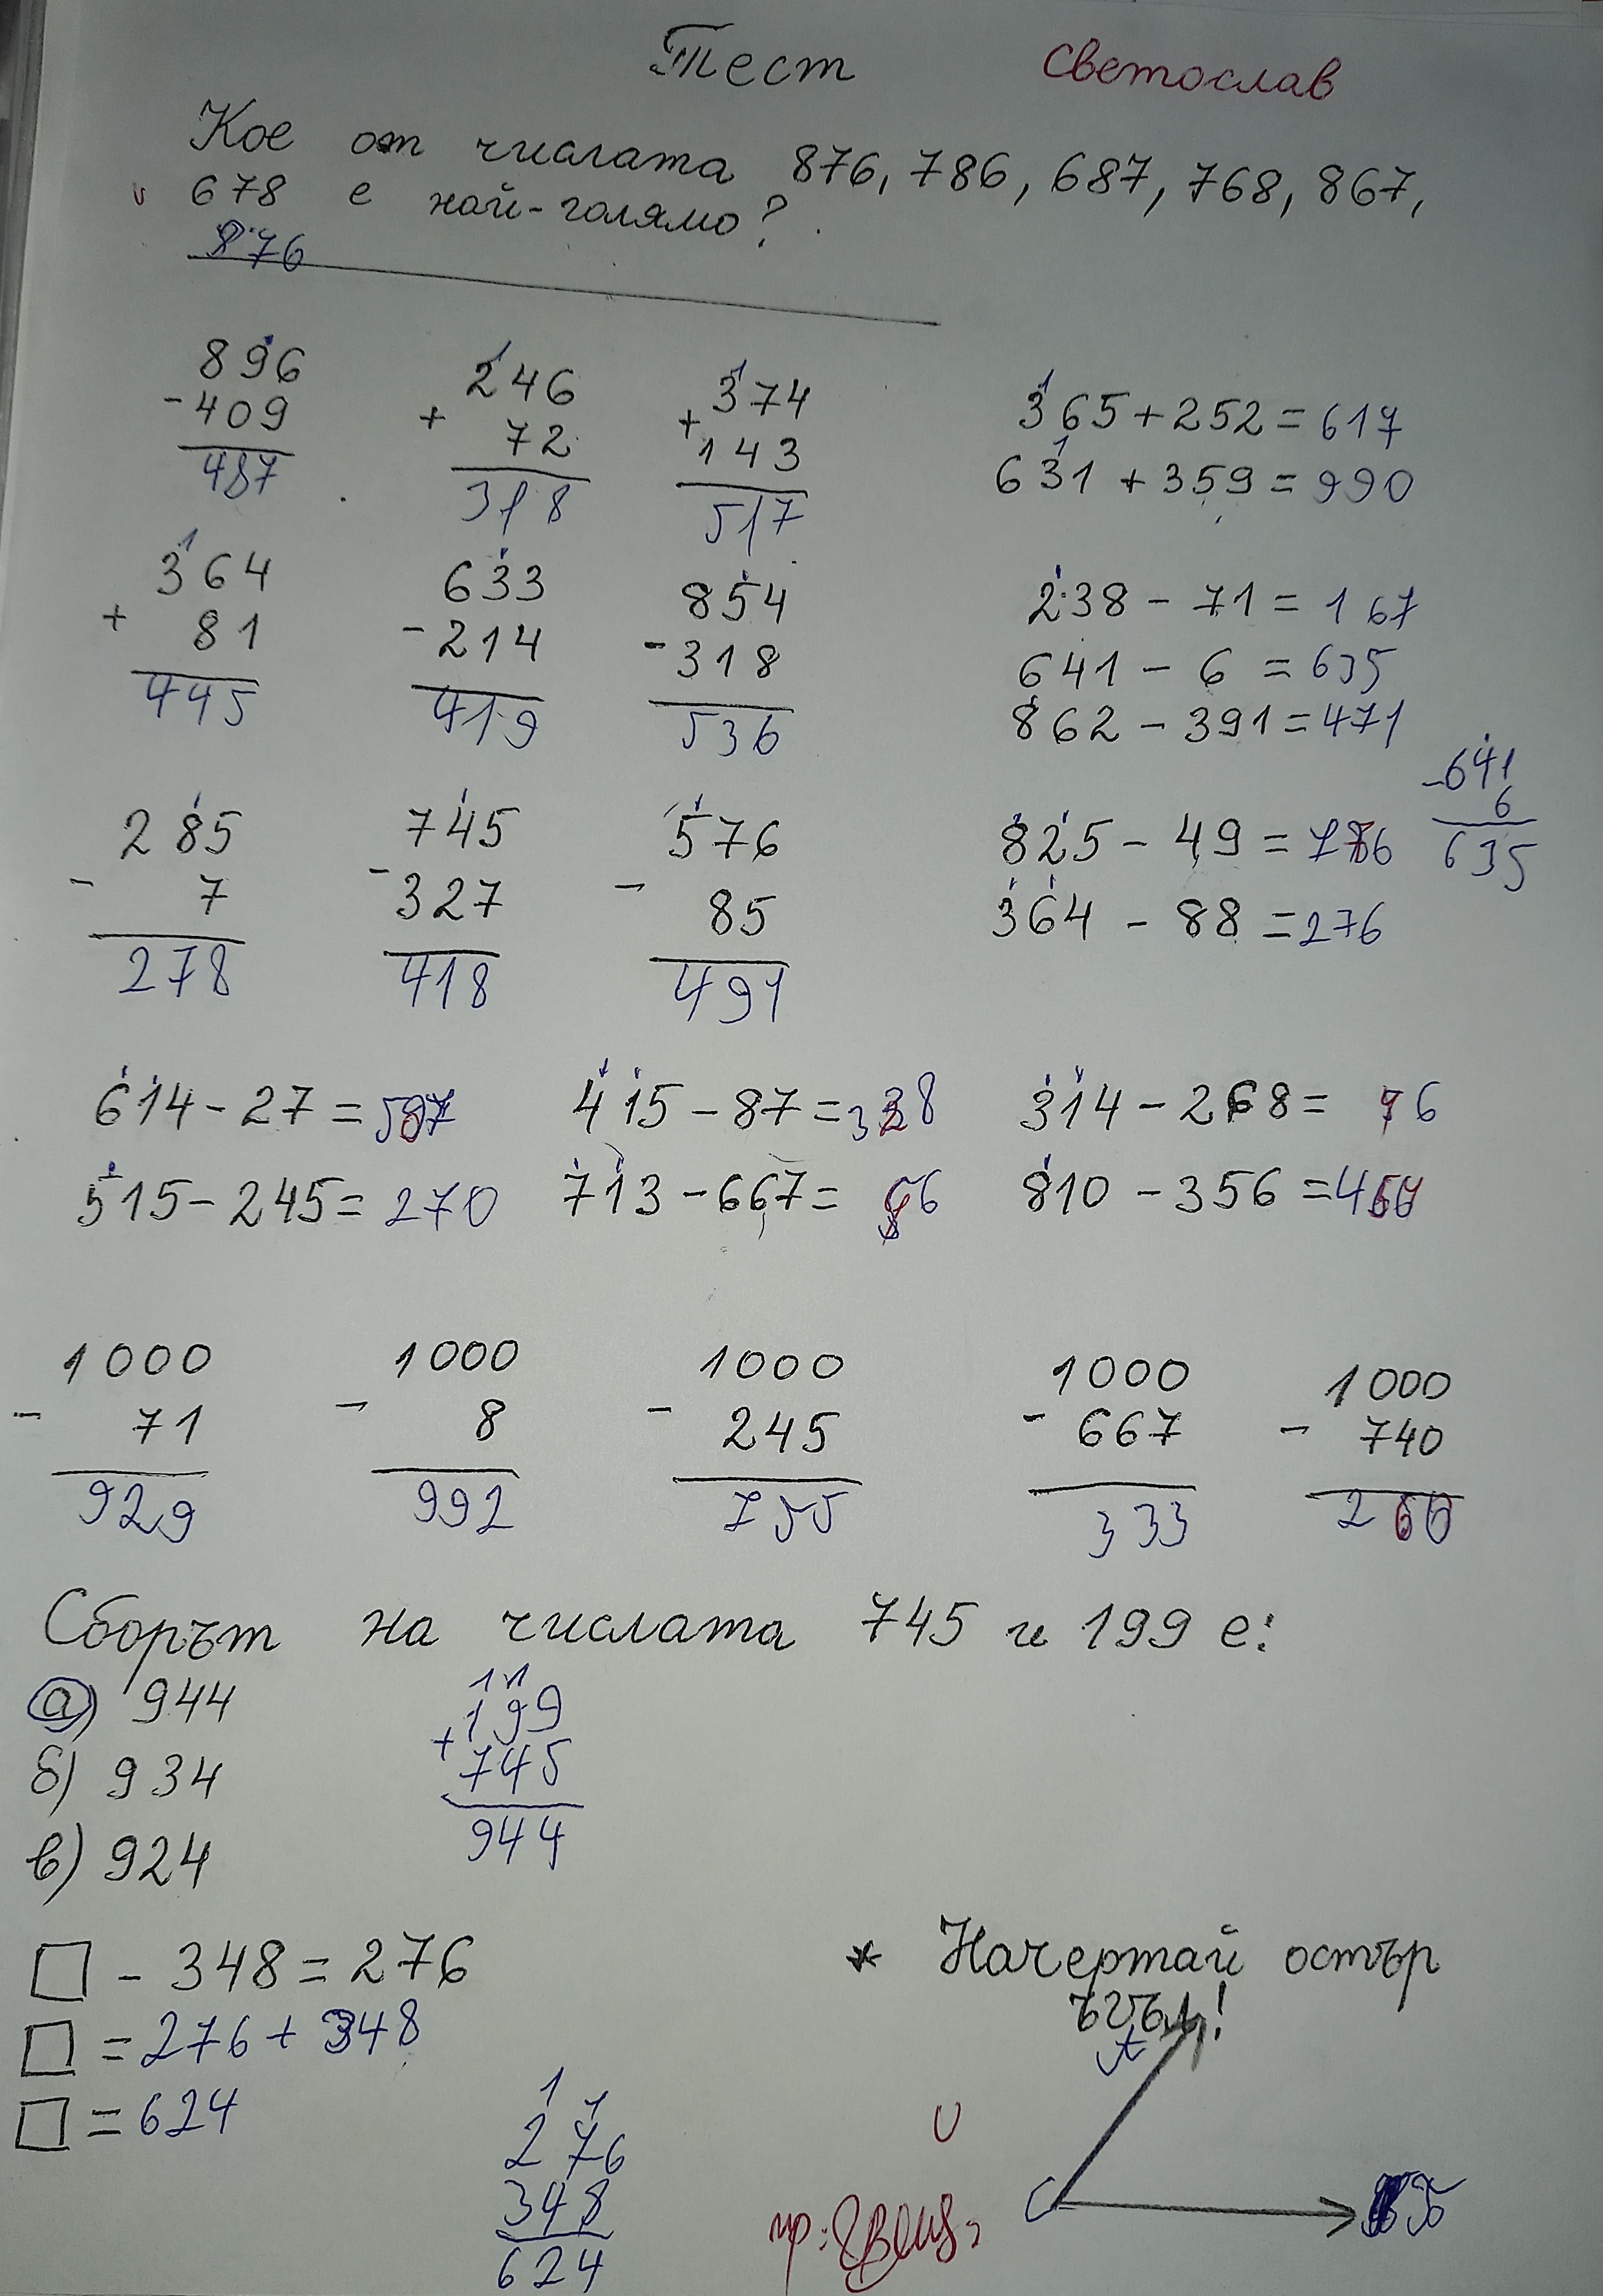 Тест Светослав
Кое от числата 876, 786, 687, 768, 867,
678 е най-голямо?
876
896 - 409 487
246 + 72 318
374 + 143 517
365 + 252 = 617
631 + 359 = 990
364 + 81 445
633 - 214 419
854 - 318 536
238 - 71 = 167
641 - 6 = 635
862 - 391 = 471
- 641 6 635
285 - 7 278
745 - 327 418
576 - 85 491
825 - 49 = 776
364 - 88 = 276
614 - 27 = 587
415 - 87 = 328
314 - 268 =
515 - 245 = 270
713 - 667 =
810 - 356 = 454
1000 - 71 929
1000 - 8 992
1000 - 245 755
1000 - 667 333
1000 - 740 260
Сборът на числата 745 и 199 е:
а) 944
б) 934
в) 924
11
199 + 745 944
□ - 348 = 276
□ = 276 + 348
□ = 624
1 1
276 348 624
* Начертай остър
ъгъл!